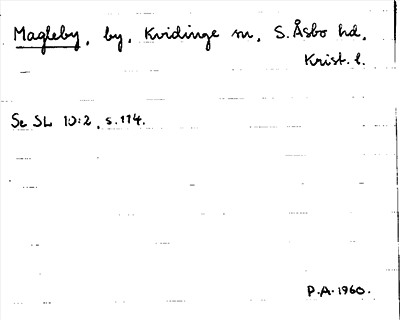 Magleby, by, Kvidinge sn, S. Åsbo hd,
Krist. l.
Se SL 10:2, s. 114.
P.A. 1960.